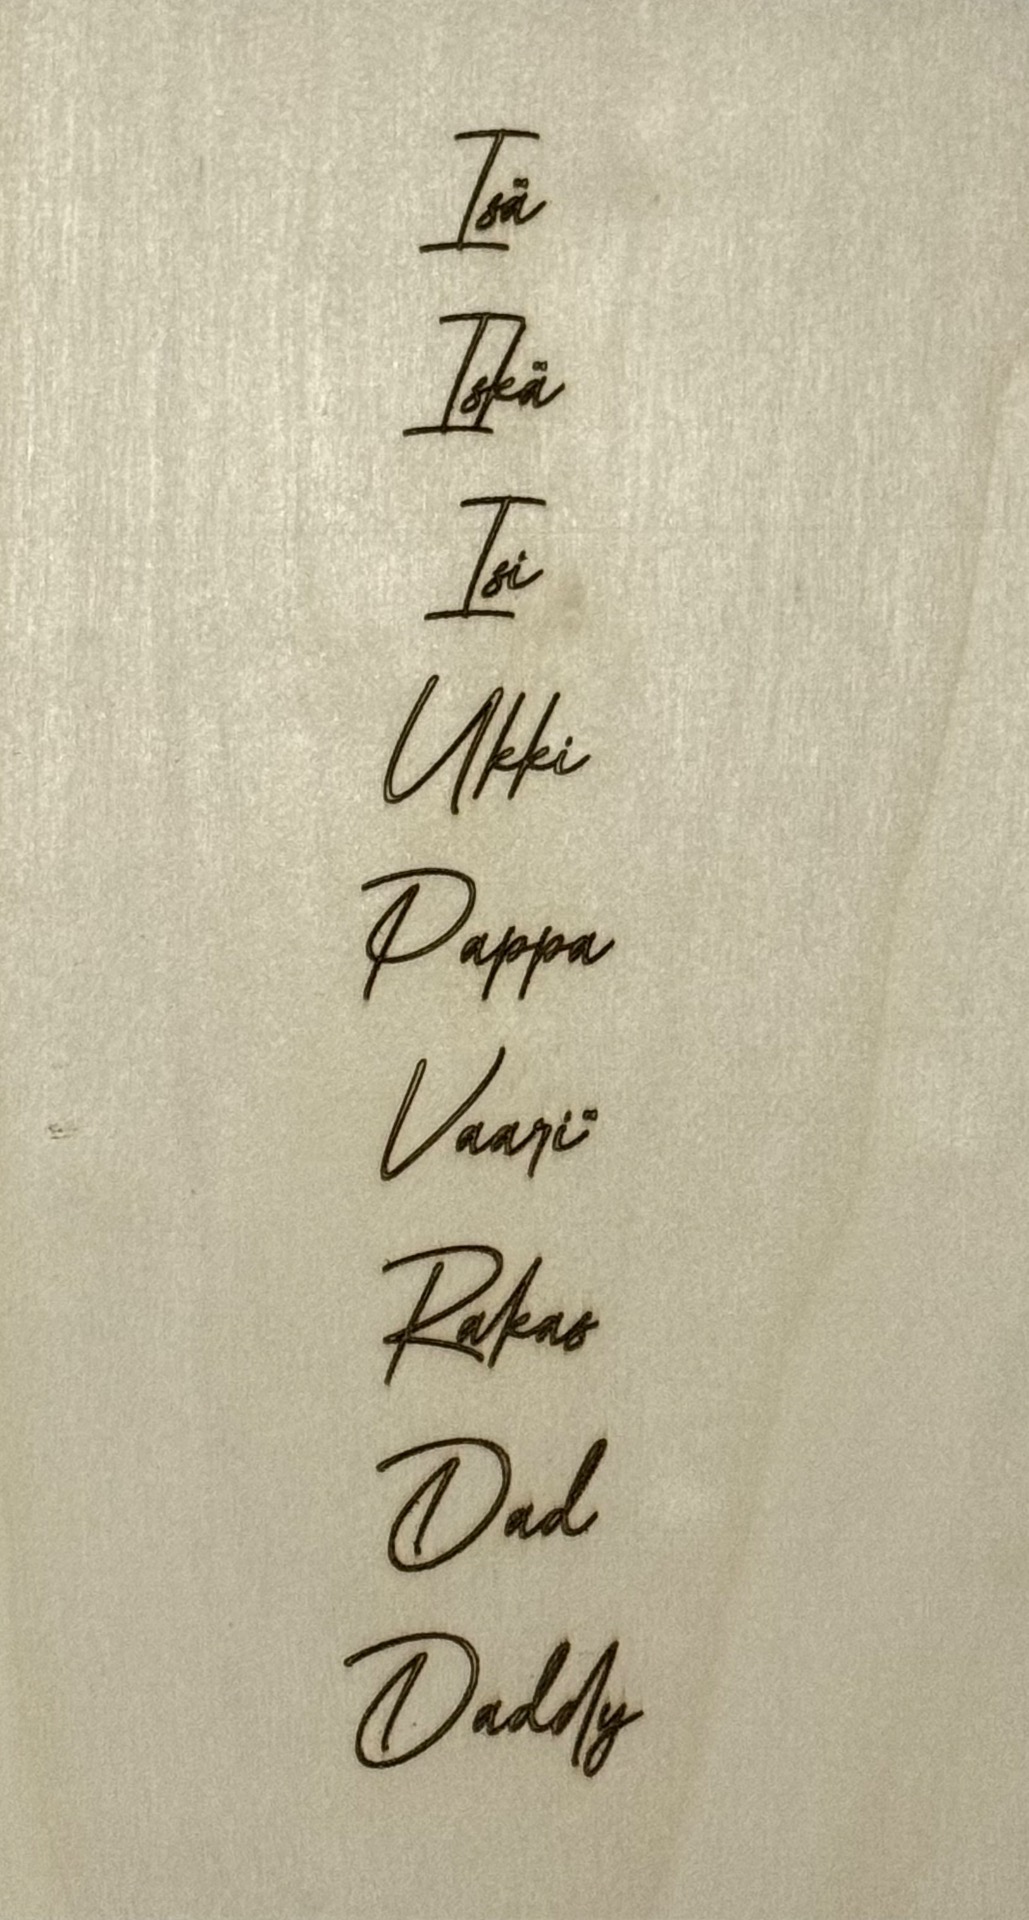 Isä
Iskä
Isi
Ukki
Pappa
Vaari
Rakas
Dad
Daddy